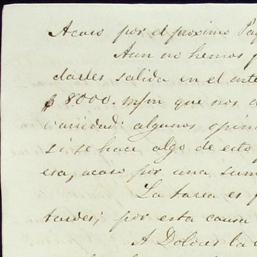 Acaso por el proximo Paq
Aun no hemos p
darles salida en el inte
$8000. m/m que nos d
variedad: algunos opin
si se hace algo de esto
esa, acaso por una sum
La tarea es p
tardes; por esta causa
A Dolores la